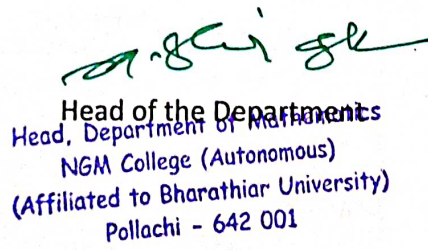 Head of the Department
Head, Department of Mathematics
NGM College (Autonomous)
(Affiliated to Bharathiar University)
Pollachi - 642 001